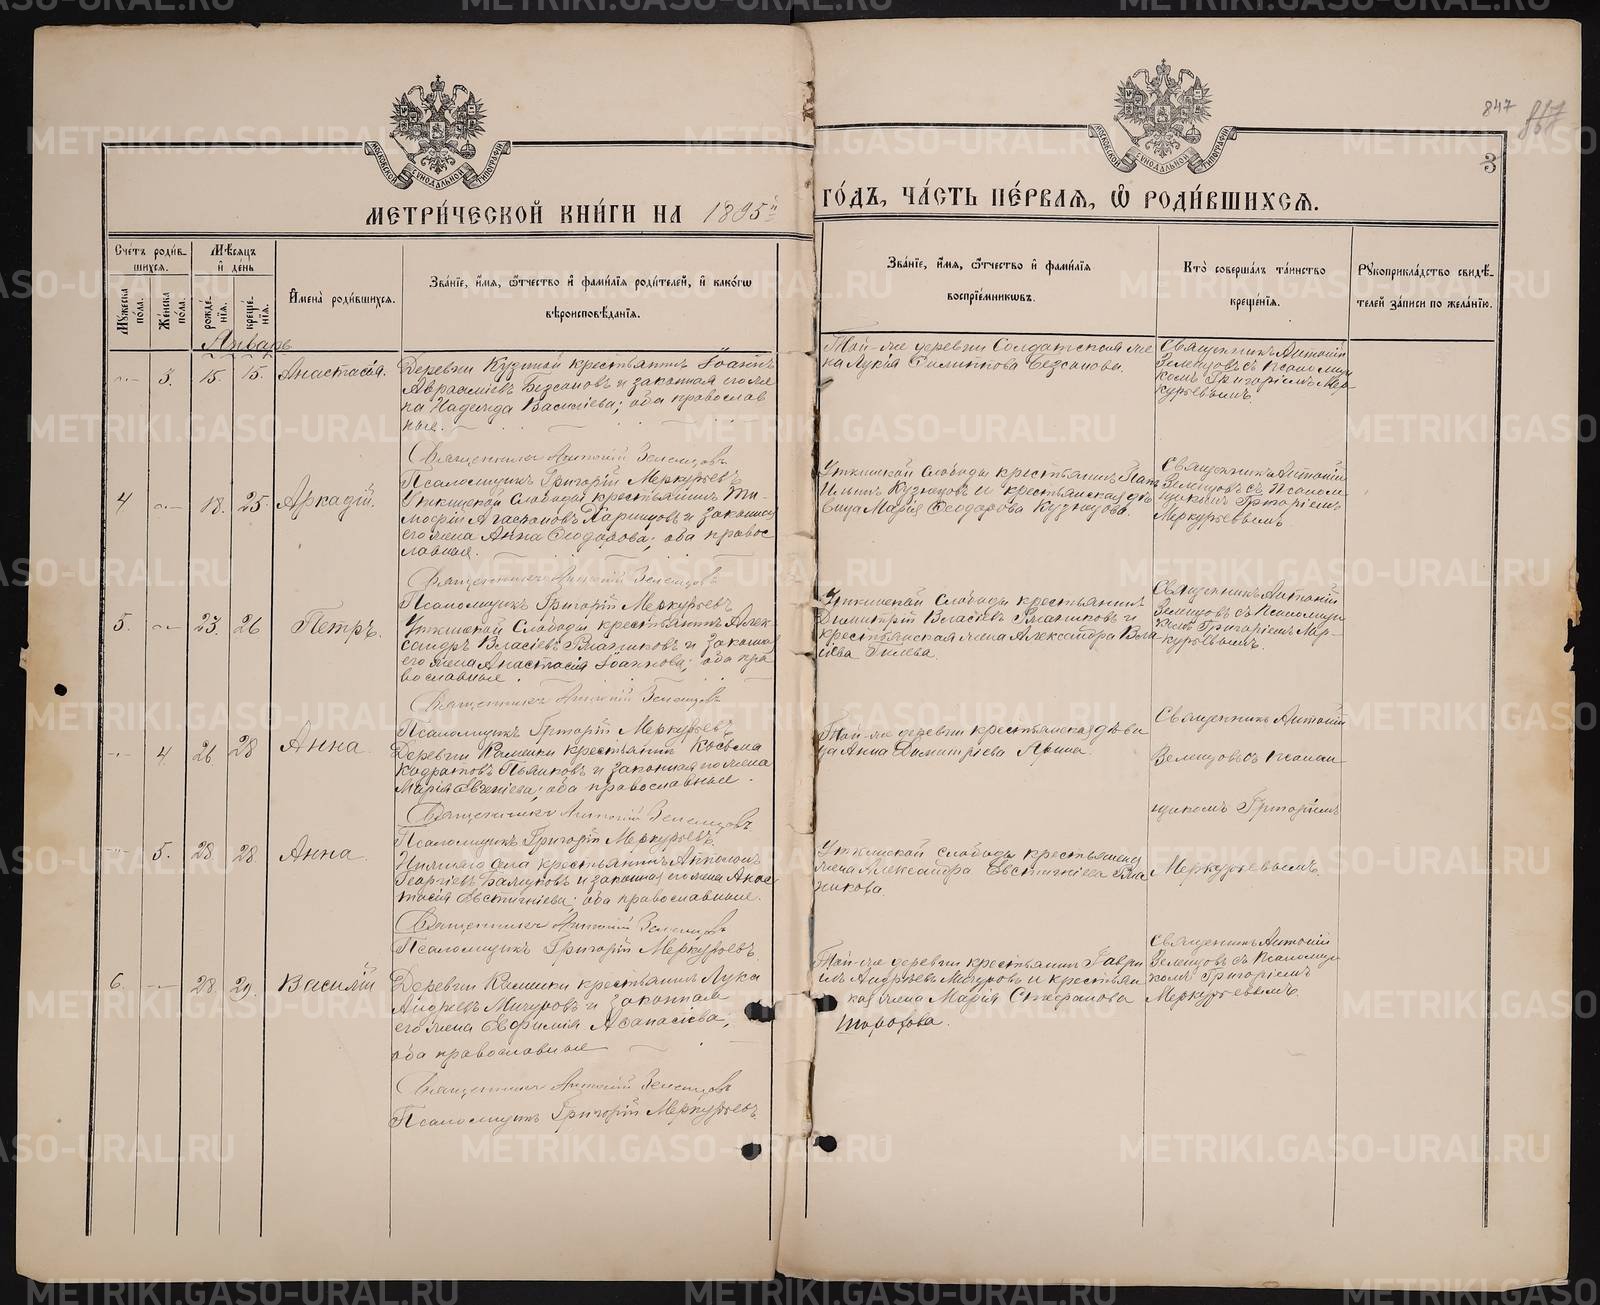 847
3
МОСКОВСКОЙ СѴНОДАЛЬНОЙ ТИПОГРАФІИ
МОСКОВСКОЙ СѴНОДАЛЬНОЙ ТИПОГРАФІИ
МЕТРИ́ЧЕСКОЙ КНИ́ГИ НА 1895й ГО́ДЪ, ЧА́СТЬ ПЕ́РВАЯ, Ѿ РОДИ́ВШИХСЯ.
Сче́тъ роди́в-
шихся.
Му́жеска по́ла.
Же́нска по́ла.
Мѣ́сяцъ
и҆ де́нь
рожде́-
нїя.
креще́-
нїя.
И҆мена̀ роди́вшихся.
Зва́нїе, и҆́мя, ѻ҆́тчество и҆ фами́лїя роди́телей, и҆ како́гѡ
вѣроисповѣ́данїя.
Зва́нїе, и҆́мя, ѻ҆́тчество и҆ фами́лїя
воспрїе́мниковъ.
Кто̀ соверша́лъ та́инство
креще́нїя.
Рꙋкоприкла́дство свидѣ́-
телей за́писи по жела́нїю.
Январь
3. 15. 15. Анастасія.
Деревни Кузиной крестьянинъ Іоаннъ
Авраамiевъ Безсоновъ и законная его же-
на Надежда Василіева; оба православ
ные.
Священникъ Антоній Зеленцовъ
Псаломщикъ Григорій Меркурьевъ
Той-же деревни Солдатская же
на Лукія Филиппова Безсонова.
Священникъ Антоній
Зеленцовъ съ Псаломщи
комъ Григоріемъ Мер-
курьевымъ.
4 18. 25. Аркадій.
Уткинской Слободы крестьянинъ Ти-
мофій Агафоновъ Харинцовъ и законная
его жена Анна Ѳеодорова; оба правос
лавные.
Священникъ Антоній Зеленцовъ
Псаломщикъ Григорій Меркурьевъ
Уткинской Слободы крестьянинъ
Ильинъ Кузнецовъ и крестьянская дѣ
вица Марія Ѳеодорова Кузнецова.
Священникъ Антоній
Зеленцовъ съ Псалом-
щикомъ Григоріемъ
Меркурьевымъ.
5. 23. 26 Петръ.
Уткинской Слободы крестьянинъ Алек-
сандръ Власіевъ и законная
его жена Анастасія Іоаннова; оба пра
вославные.
Священникъ Антоній Зеленцовъ
Псаломщикъ Григорій Меркурьевъ
Уткинской Слободы крестьянинъ
Димитрій Власіевъ и
крестьянская жена Александра Вла
сіева Гилева.
Священникъ Антоній
Зеленцовъ съ Псаломщи
комъ Григоріемъ Мер-
курьевымъ.
4. 26. 28 Анна
Деревни Каменки крестьянинъ Косьма
Кодратовъ Пьянковъ и законная его жена
Марія Евгеніева; оба православные.
Священникъ Антоній Зеленцовъ
Псаломщикъ Григорій Меркурьевъ.
Той-же деревни крестьянская дѣви
ца Анна Димитріева
Священникъ Антоній
Зеленцовъ съ Псалом-
щикомъ Григоріемъ
Меркурьевымъ.
5. 28. 28. Анна.
села крестьянинъ
Георгіевъ и законная его жена Анас
тасія Евстигніева; оба православные.
Священникъ Антоній Зеленцовъ
Псаломщикъ Григорій Меркурьевъ
Уткинской слободы крестьянска
жена Александра Евстигніева
6. 28. 29. Василій
Деревни Каменки крестьянинъ Лука
Андреевъ Мичуровъ и законная
его жена Евфимія Аѳанасіева;
оба православные
Священникъ Антоній Зеленцовъ
Псаломщикъ Григорій Меркурьевъ.
Той-же деревни крестьянинъ Гаври
илъ Андреевъ Мичуровъ и крестьян
ская жена Марія Стефанова
Шорохова.
Священникъ Антоній
Зеленцовъ съ Псаломщи
комъ Григоріемъ
Меркурьевымъ.
METRIKI.GASO-URAL.RU